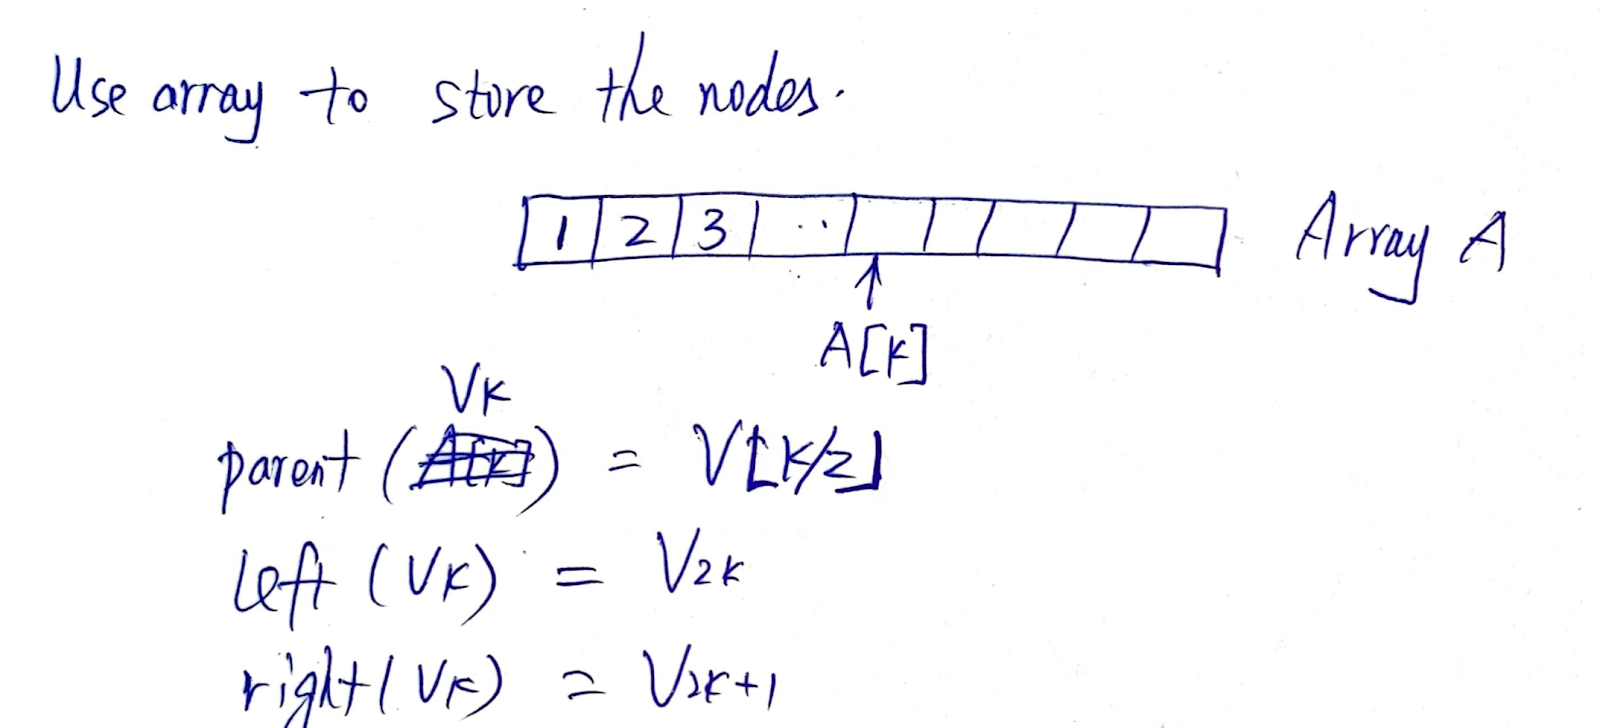 Use array to store the nodes.
1 2 3 ..
Array A
A[k]
Vk
parent ( ) = V⌊k/2⌋
left (Vk) = V2k
right (Vk) = V2k+1